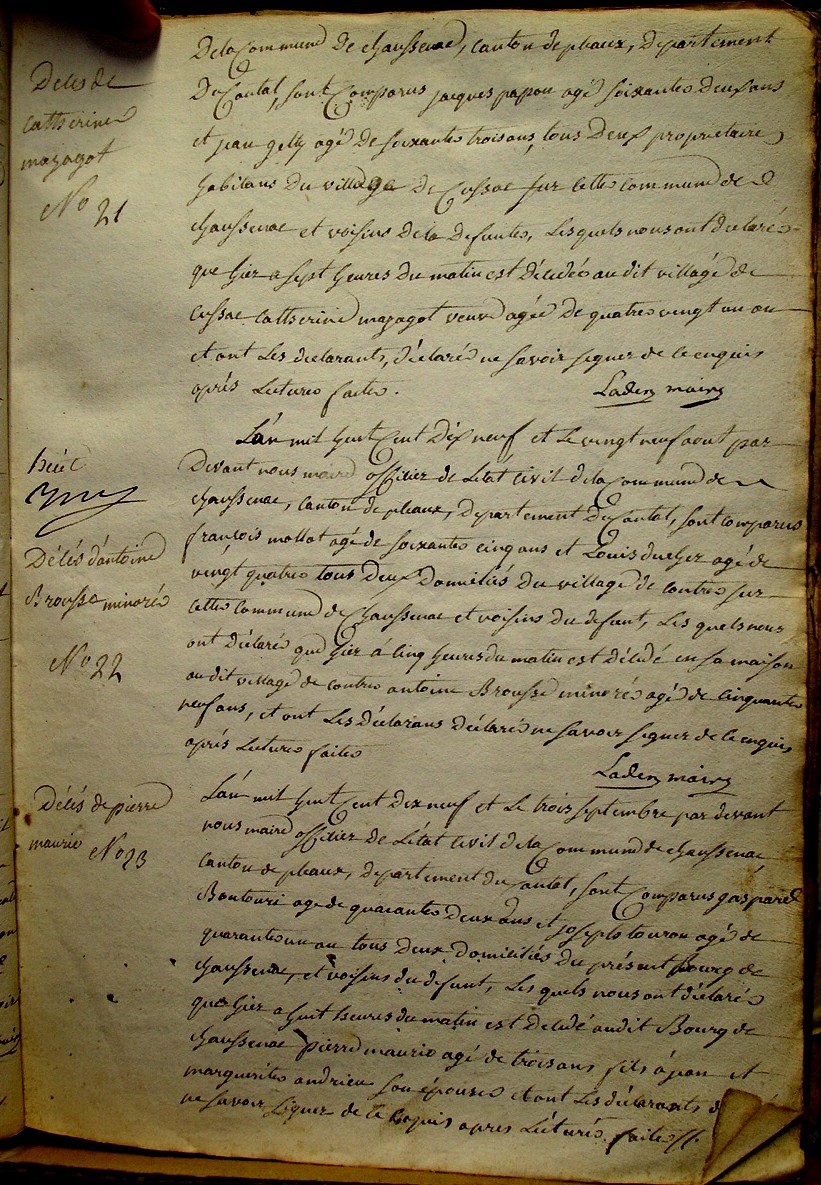 Décès de
catherine
mazagot
No 21
De la Commune De chaussenac, canton de pleaux, Département
Du Cantal, sont Comparus jacques papon agé soixante Deux ans
et jean gelly agé De soixante trois ans, tous Deux propriétaires
habitans Du village De Cussac sur cette commune de
chaussenac et voisins De la Defunte, Lesquels nous ont declarés
que hier a sept heures Du matin est Décédée au dit village de
Cussac catherine mazagot veuve agée De quatre vingt un an
et ont Les declarants, Déclaré ne savoir signer de ce enquis
aprés Lecture faite.
Laden maire
huit
Décés d'antoine
Brousse minoré
No 22
L'an mil huit Cent Dix neuf et Le vingt neuf aout par
Devant nous maire officier de Létat Civil De la Commune de
chaussenac, canton de pleaux, Département Du Cantal, sont comparus
françois mollat agé de soixante cinq ans et Louis duchez agé de
vingt quatre tous Deux Domiciliés Du village de contre sur
cette commune de chaussenac et voisins Du defunt, Les quels nous
ont Déclaré que hier á cinq heures du matin est Décédé en sa maison
au dit village de contre antoine Brousse minoré agé de cinquante
neuf ans, et ont Les Déclarans Déclaré ne savoir signer de ce enquis
aprés Lecture faite
Laden maire
Décés de pierre
maurio No 23
L'an mil huit Cent dix neuf et Le trois septembre par devant
nous maire officier de Létat Civil De la Commune de chaussenac
canton de pleaux, Département du Cantal, sont Comparus gaspard
Bontouri agé de quarante Deux ans et joseph touron agé de
quarante un an tous Deux domiciliés Du présent Bourg de
chaussenac, et voisins du defunt, Les quels nous ont déclaré
que hier a huit heures du matin est Décédé audit Bourg de
chaussenac pierre maurio agé de trois ans fils á jean et
marguerite andrieu son épouse et ont Les déclarants d
ne savoir signer de ce enquis aprés Lecture faite //.